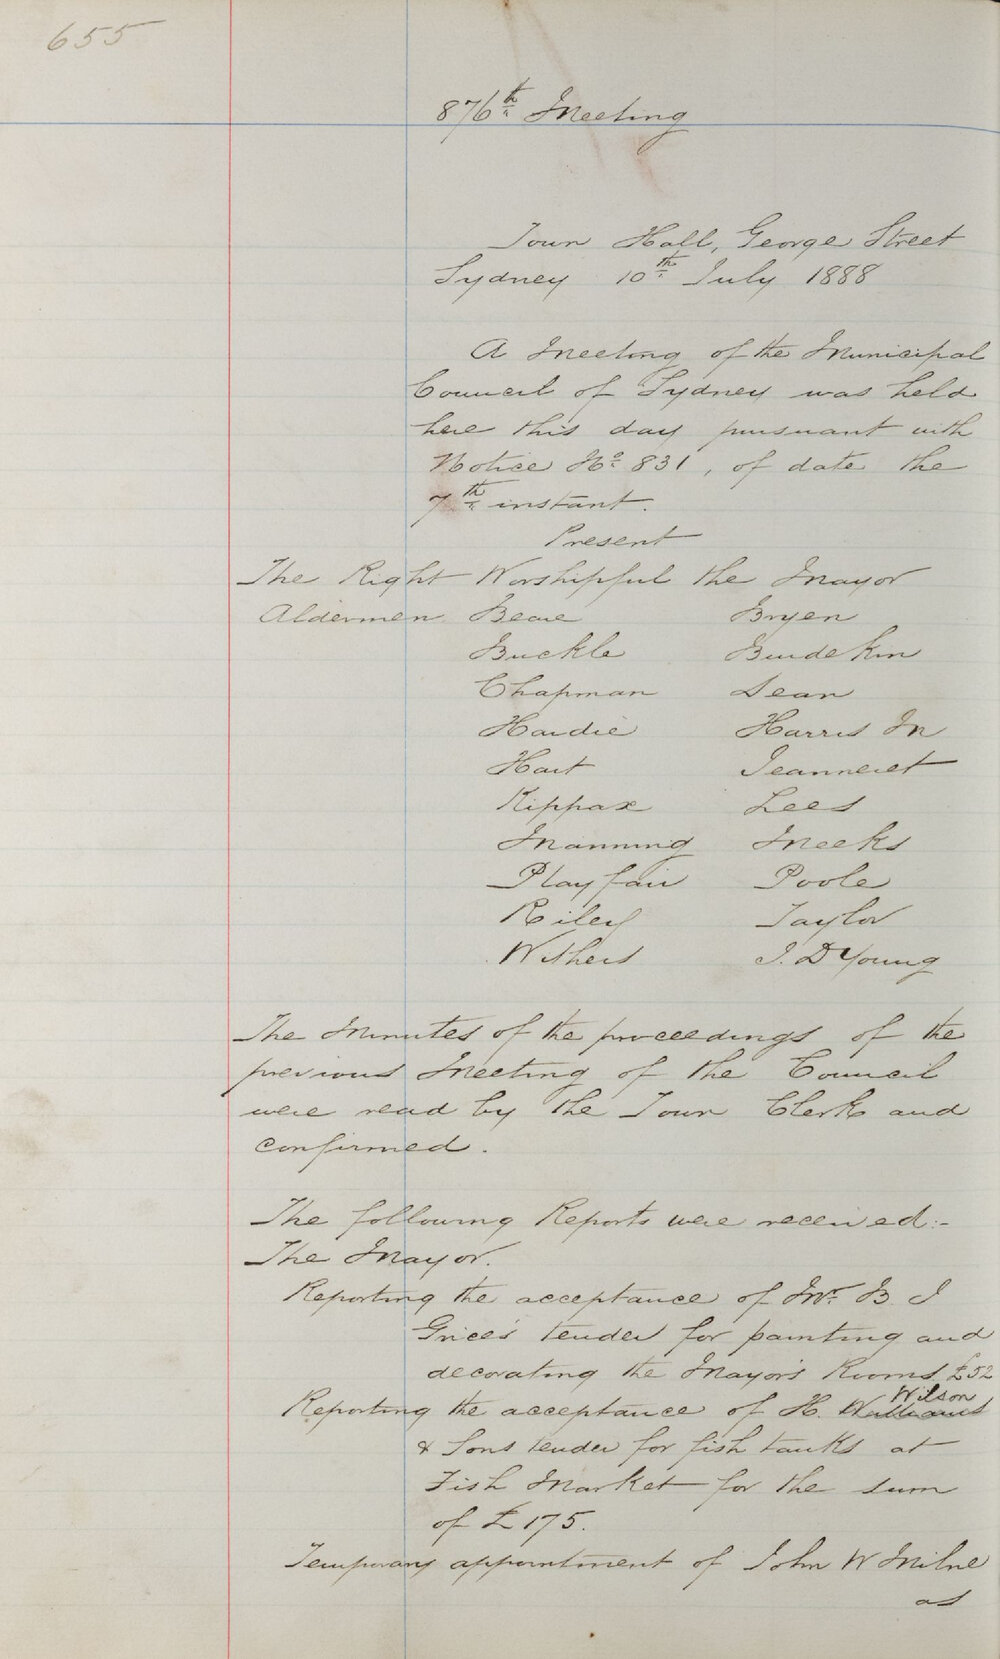 655
876th Meeting
Town Hall, George Street
Sydney 10th July 1888
A Meeting of the Municipal
Council of Sydney was held
here this day pursuant with
Notice No 831, of date the
7th instant.
Present
The Right Worshipful the Mayor
Aldermen Beare Bryen
Buckle Burdekin
Chapman Dean
Hardie Harris Jn
Hart Jeanneret
Kippax Lees
Manning Meeks
Playfair Poole
Riley Taylor
Withers J. D Young
The Minutes of the proceedings of the
previous Meeting of the Council
were read by the Town Clerk and
confirmed.
The following Reports were received:-
The Mayor.
Reporting the acceptance of Mr. B. J
Grice's tender for painting and
decorating the Mayor's Rooms £52
Wilson
Reporting the acceptance of H. Williams
& Sons tender for fish tanks at
Fish Market for the sum
of £175.
Temporary appointment of John W Milne
as